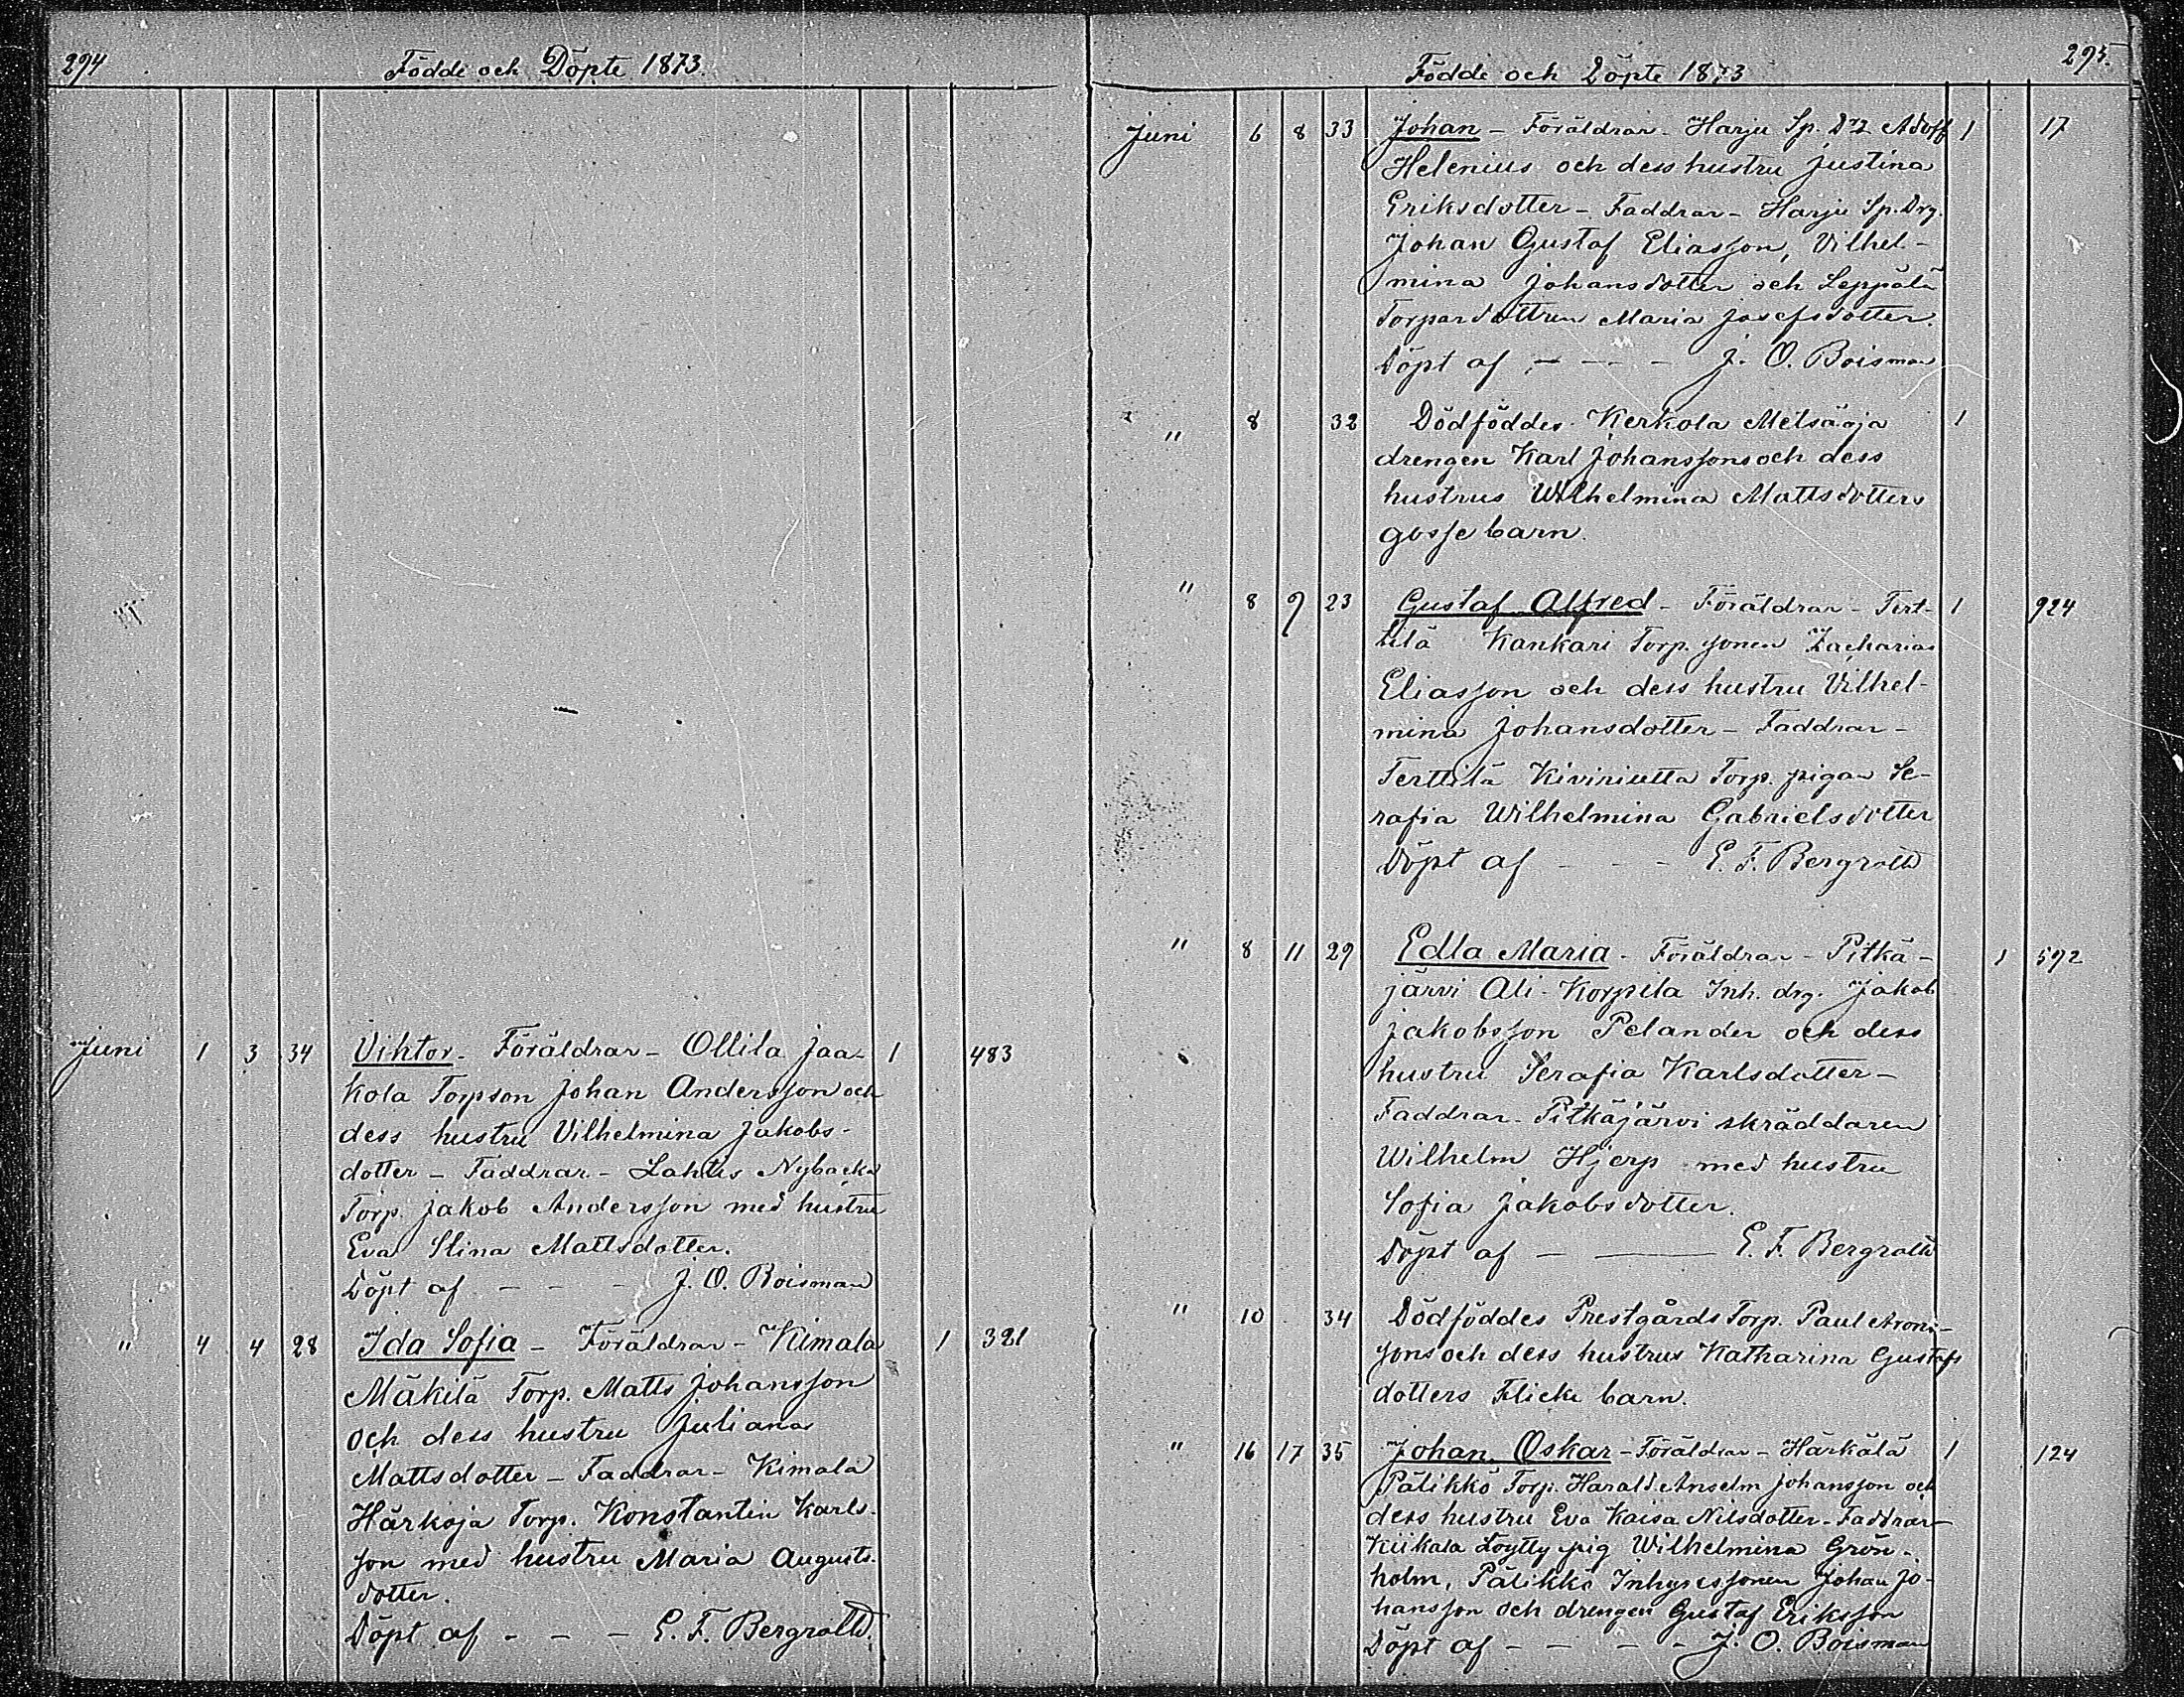 294
Födde och Döpte 1873.
Juni 1 3 34 Vihtor - Föräldrar - Ollila Jaa- 1 483
kola Torpson Johan Andersson och
dess hustru Vilhelmina Jakobs-
dotter - Faddrar - Lahtis Nybacka
Torp. Jakob Andersson med hustru
Eva Stina Mattsdotter.
Döpt af - - - J. O. Boisman
" 4 4 28 Ida Sofia - Föräldrar - Kimala 1 321
Mäkilä Torp. Matts Johansson
och dess hustru Juliana
Mattsdotter - Faddrar - Kimala
Härkoja Torp. Konstantin Karls-
son med hustru Maria Augusts-
dotter.
Döpt af - - - E. F. Bergroth.
295.
Födde och Döpte 1873
Juni 6 8 33 Johan - Föräldrar - Harju Sp. Adolf 1 17
Helenius och dess hustru Justina
Eriksdotter - Faddrar - Harju Sp. Drg.
Johan Gustaf Eliasson, Vilhel-
mina Johansdotter och Leppälä
Torpardottren Maria Josefsdotter.
Döpt af - - - J. O. Boisman
" 8 32 Dödföddes Kerkola Metsäoja 1
drengen Karl Johanssons och dess
hustrus Wilhelmina Mattsdotters
gosse barn.
" 8 9 23 Gustaf Alfred - Föräldrar - Tert- 1 924
tilä Kankari Torp. sonen Zacharias
Eliasson och dess hustru Vilhel-
mina Johansdotter - Faddrar -
Terttilä Kiviniutta Torp. pigan Se-
rafia Wilhelmina Gabrielsdotter
Döpt af - - - E. F. Bergroth
" 8 11 29 Edla Maria - Föräldrar - Pitkä- 1 592
järvi Ali-Korpila Inh. drg. Jakob
Jakobsson Pelander och dess
hustru Serafia Karlsdotter -
Faddrar - Pitkäjärvi skräddaren
Wilhelm Hjerp med hustru
Sofia Jakobsdotter.
Döpt af - - E. F. Bergroth
" 10 34 Dödföddes Prestgårds Torp. Paul Arons-
sons och dess hustrus Katharina Gustafs
dotters Flicke barn.
" 16 17 35 Johan Oskar - Föräldrar - Härkälä 1 124
Pälikkö Torp. Harald Anselm Johansson och
dess hustru Eva Kaisa Nilsdotter - Faddrar -
Kiikala Löytty pig Wilhelmina Grön-
holm, Pälikkö Inhysessonen Johan Jo-
hansson och drengen Gustaf Eriksson
Döpt af - - - - J. O. Boisman